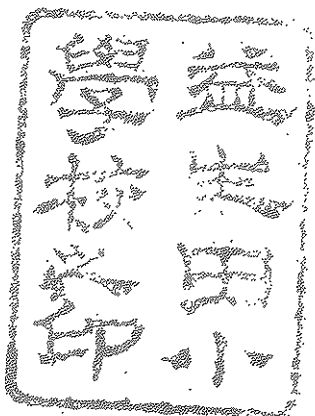 益生田小
學校之印